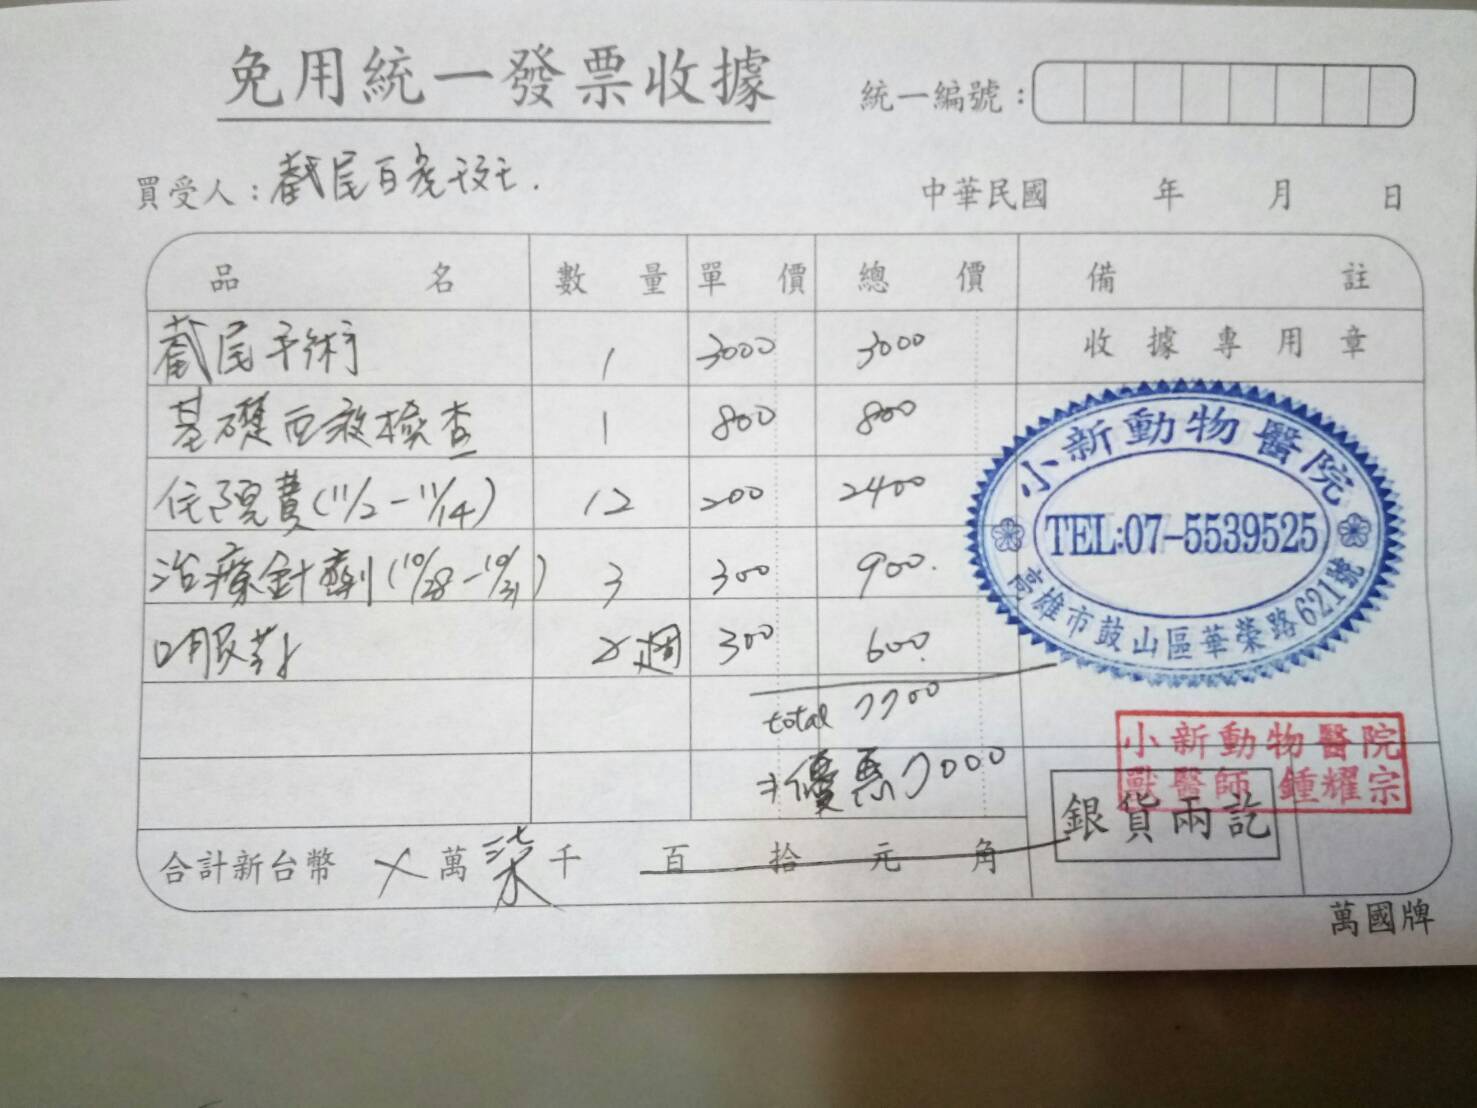 免用統一發票收據
統一編號：
買受人：截尾百虎班
中華民國 年 月 日
品名 數量 單價 總價 備註
截尾手術 1 3000 3000 收據專用章
基礎血液檢查 1 800 800
住院費(11/2-11/14) 12 200 2400
治療針劑(10/28-10/31) 3 300 900.
口服藥 2週 300 600.
total 7700
⇒優惠7000
合計新台幣 ㄨ萬柒千 百 拾 元 角
小新動物醫院
TEL:07-5539525
高雄市鼓山區華榮路621號
小新動物醫院
獸醫師 鍾耀宗
銀貨兩訖
萬國牌